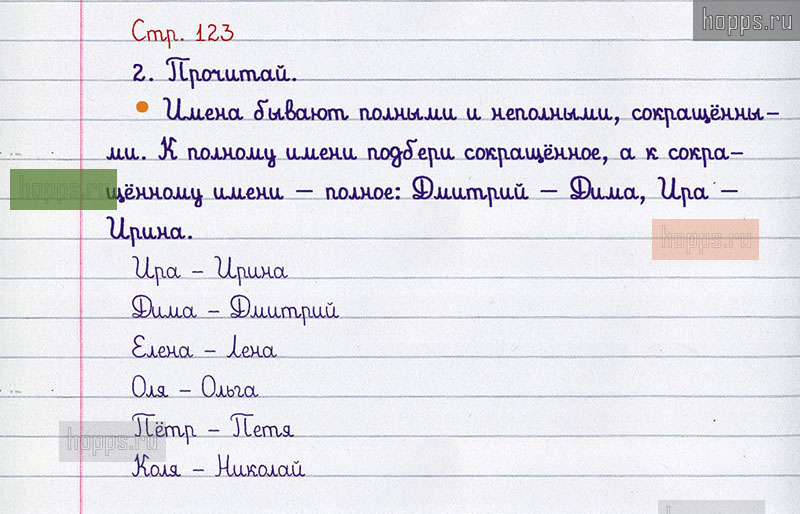 hopps.ru
Стр. 123
2. Прочитай.
Имена бывают полными и неполными, сокращённы-
ми. К полному имени подбери сокращённое, а к сокра-
hopps.ru
щённому имени – полное: Дмитрий – Дима, Ира –
Ирина.
hopps.ru
Ира – Ирина
Дима – Дмитрий
Елена – Лена
Оля – Ольга
Пётр – Петя
hopps.ru
Коля – Николай
hopps.ru